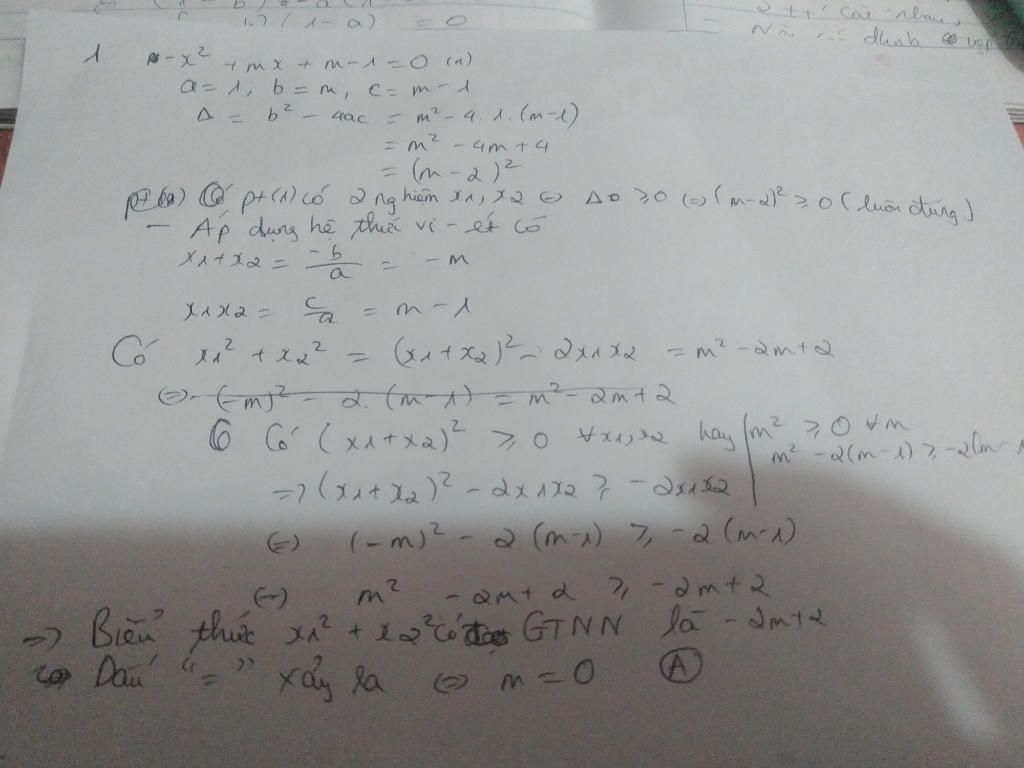 1.7 (1-a) = 0
1 -x² + mx + m-1 = 0 (1)
a = 1, b = m, c = m-1
Δ = b² - 4ac = m² - 4.1.(m-1)
= m² - 4m + 4
= (m-2)²
pt(1) có 2 nghiệm x1, x2 ⇔ Δ ≥ 0 ⇔ (m-2)² ≥ 0 (luôn đúng)
- Áp dụng hệ thức vi-ét có
x1+x2 = -b/a = -m
x1x2 = c/a = m-1
Có x1² + x2² = (x1+x2)² - 2x1x2 = m² - 2m + 2
⇔ (-m)² - 2.(m-1) = m² - 2m + 2
Có (x1+x2)² ≥ 0 ∀x1,x2 hay m² ≥ 0 ∀m
m² - 2(m-1) ≥ -2(m-1
=> (x1+x2)² - 2x1x2 ≥ -2x1x2
(=) (-m)² - 2.(m-1) ≥ -2.(m-1)
(=) m² - 2m + 2 ≥ -2m + 2
=> Biểu thức x1² + x2² có GTNN là -2m+2
Dấu "=" xảy ra ⇔ m = 0 A